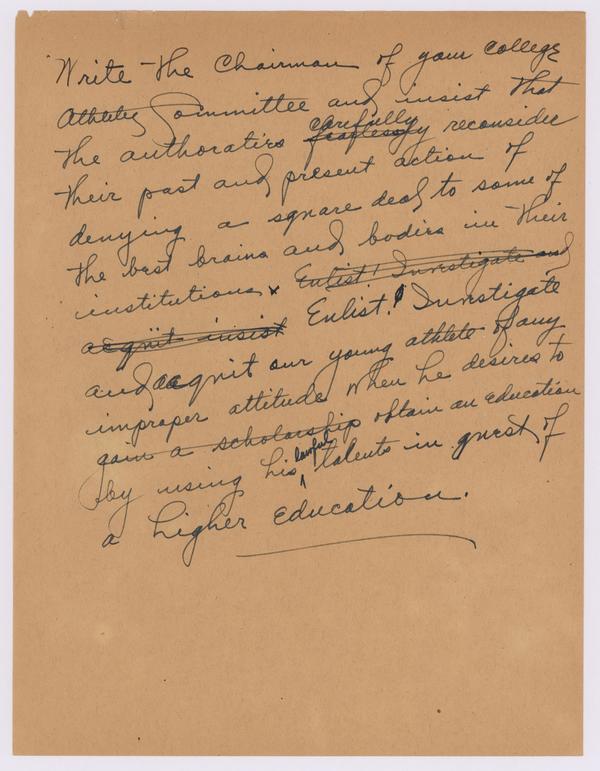 Write the Chairman of your College
Athletic Committee and insist that
carefully
the authoraties fearlessly reconsider
their past and present action of
denying a square deal to some of
the best brains and bodies in their
institutions x Enlist! Investigate and
acquit insist Enlist! Investigate
and acquit our young athlete of any
improper attitude when he desires to
gain a scholarship obtain an education
lawful
by using his talents in quest of
a higher education.